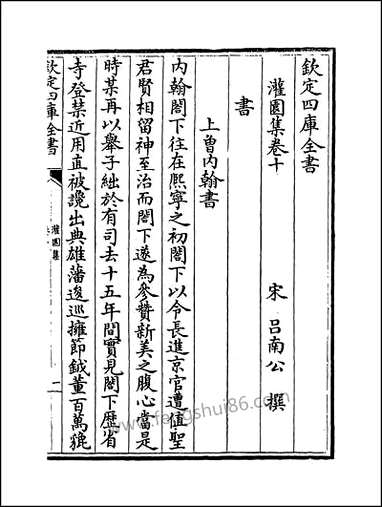 欽定四庫全書
灌園集卷十
宋 呂南公 撰
書
上曾内翰書
内翰閤下往在熈寧之初閤下以令長進京官遭值聖
君賢相留神至治而閤下遂為參賛新美之腹心當是
時某再以舉子絀於有司去十五年間實見閤下歴省
寺登禁近用直被讒出典雄藩逡巡擁節鉞董百萬貔
欽定四庫全書
灌園集
一
www.fengshui86.com